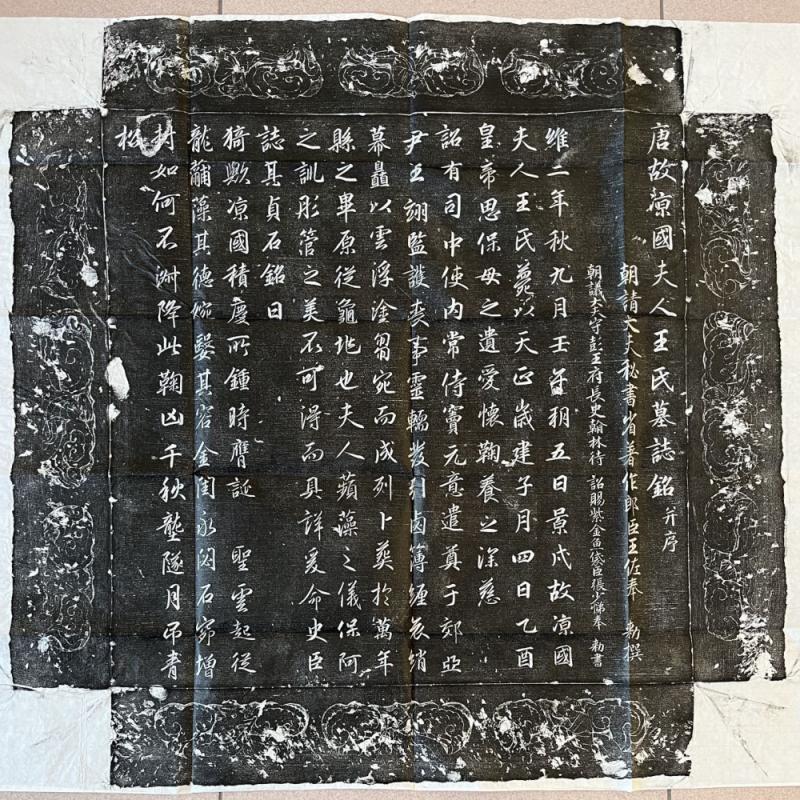 唐故凉國夫人王氏墓誌銘并序
朝請大夫秘書省著作郎臣王佐奉 勑撰
朝議大夫守彭王府長史翰林待 詔賜紫金魚袋臣張少悌奉 勑書
維二年秋九月壬午朔五日景戌故凉國
夫人王氏薨以天正歲建子月四日乙酉
皇帝思保母之遺愛懷鞠養之深慈
詔有司中使内常侍竇元意遣奠于郊亞
尹王翊監護喪事靈輴發引鹵簿纏衣綃
幕矗以雲浮塗芻宛而成列卜葬於萬年
縣之畢原從龜地也夫人蘋藻之儀保阿
之訓彤管之美不可得而具詳爰命史臣
誌其貞石銘曰
猗歟凉國積慶所鍾時膺誕 聖雲起從
龍黼藻其德婉嫕其容金閨永閟石窌增
封如何不淑降此鞠凶千秋壟隧月吊青
松